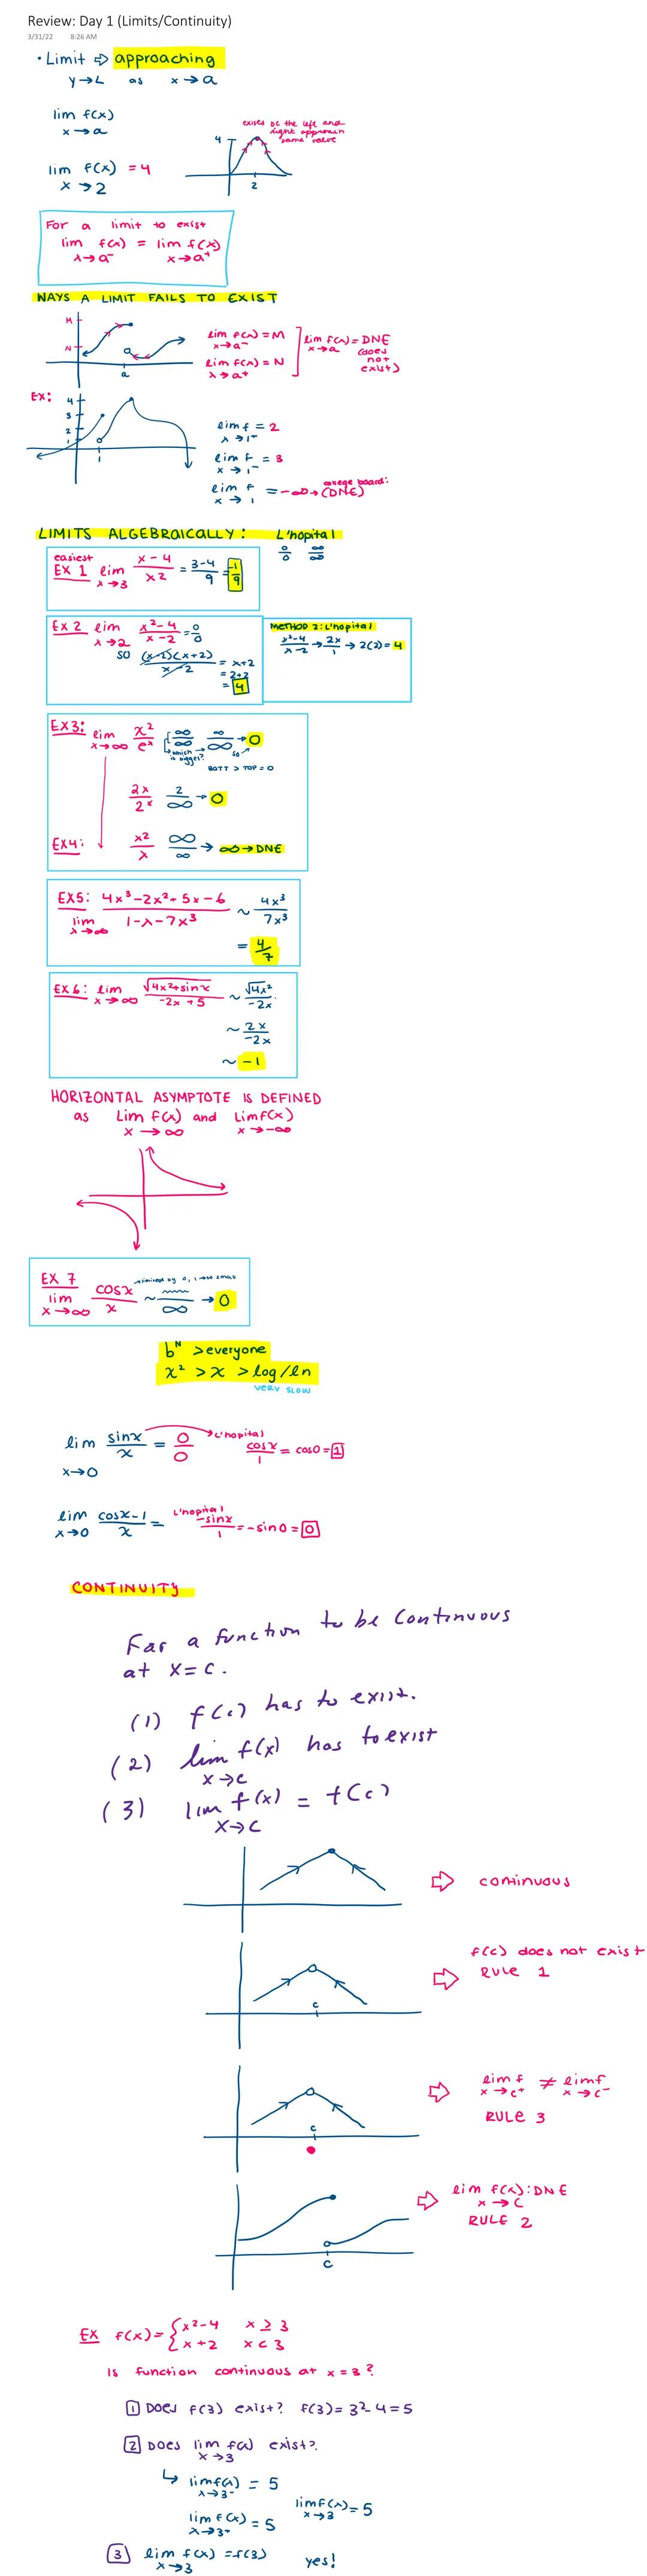 Review: Day 1 (Limits/Continuity)
3/31/22 8:26 AM
• Limit ⇨ approaching
y → L as x → a
lim f(x)
x → a
exists bc the left and
right approach
same value
4
2
lim f(x) = 4
x → 2
For a limit to exist
lim f(x) = lim f(x)
x → a⁻ x → a⁺
WAYS A LIMIT FAILS TO EXIST
M
N
a
lim f(x) = M
x → a⁻
lim f(x) = N
x → a⁺
lim f(x) = DNE
x → a (does
not
exist)
EX:
4
3
2
1
1
lim f = 2
x → 1⁻
lim f = 3
x → 1⁻
lim f = -∞ → (DNE)
x → 1
college board:
LIMITS ALGEBRAICALLY: L'hopital
0/0 ∞/∞
easiest
EX 1 lim x-4/x2 = 3-4/9 = -1/9
x → 3
EX 2 lim x²-4/x-2 = 0/0
x → 2
so (x-2)(x+2)/x-2 = x+2
= 2+2
= 4
METHOD 2: L'hopital
x²-4/x-2 → 2x/1 → 2(2) = 4
EX3: lim x²/eˣ ∞/∞ ∞/∞ → 0
x → ∞
which is bigger? so
BOTT > TOP = 0
2x/2ˣ 2/∞ → 0
EX4: x²/x ∞/∞ → ∞ → DNE
EX5: 4x³-2x²+5x-6/1-x-7x³ ~ 4x³/7x³
lim
x → ∞
= 4/7
EX 6: lim √4x²+sinx/-2x+5 ~ √4x²/-2x
x → ∞
~ 2x/-2x
~ -1
HORIZONTAL ASYMPTOTE IS DEFINED
as lim f(x) and lim f(x)
x → ∞ x → -∞
EX 7
lim cosx/x ~ /∞ → 0
x → ∞
by 0, 1 → so small
bᴺ > everyone
x² > x > log/ln
VERY SLOW
lim sinx/x = 0/0 L'hopital cosx/1 = cos0 = 1
x → 0
lim cosx-1/x = L'hopital -sinx/1 = -sin0 = 0
x → 0
CONTINUITY
For a function to be continuous
at x = c.
(1) f(c) has to exist.
(2) lim f(x) has to exist
x → c
(3) lim f(x) = f(c)
x → c
⇨ continuous
f(c) does not exist
RULE 1
c
lim f ≠ lim f
x → c⁺ x → c⁻
RULE 3
c
lim f(x): DNE
x → c
RULE 2
c
Ex f(x) = { x²-4 x ≥ 3
x+2 x < 3
Is function continuous at x = 3?
1 DOES f(3) exist? f(3) = 3²-4 = 5
2 DOES lim f(x) exist?
x → 3
↳ lim f(x) = 5
x → 3⁻
lim f(x) = 5
x → 3⁺
lim f(x) = 5
x → 3
3 lim f(x) = f(3) yes!
x → 3